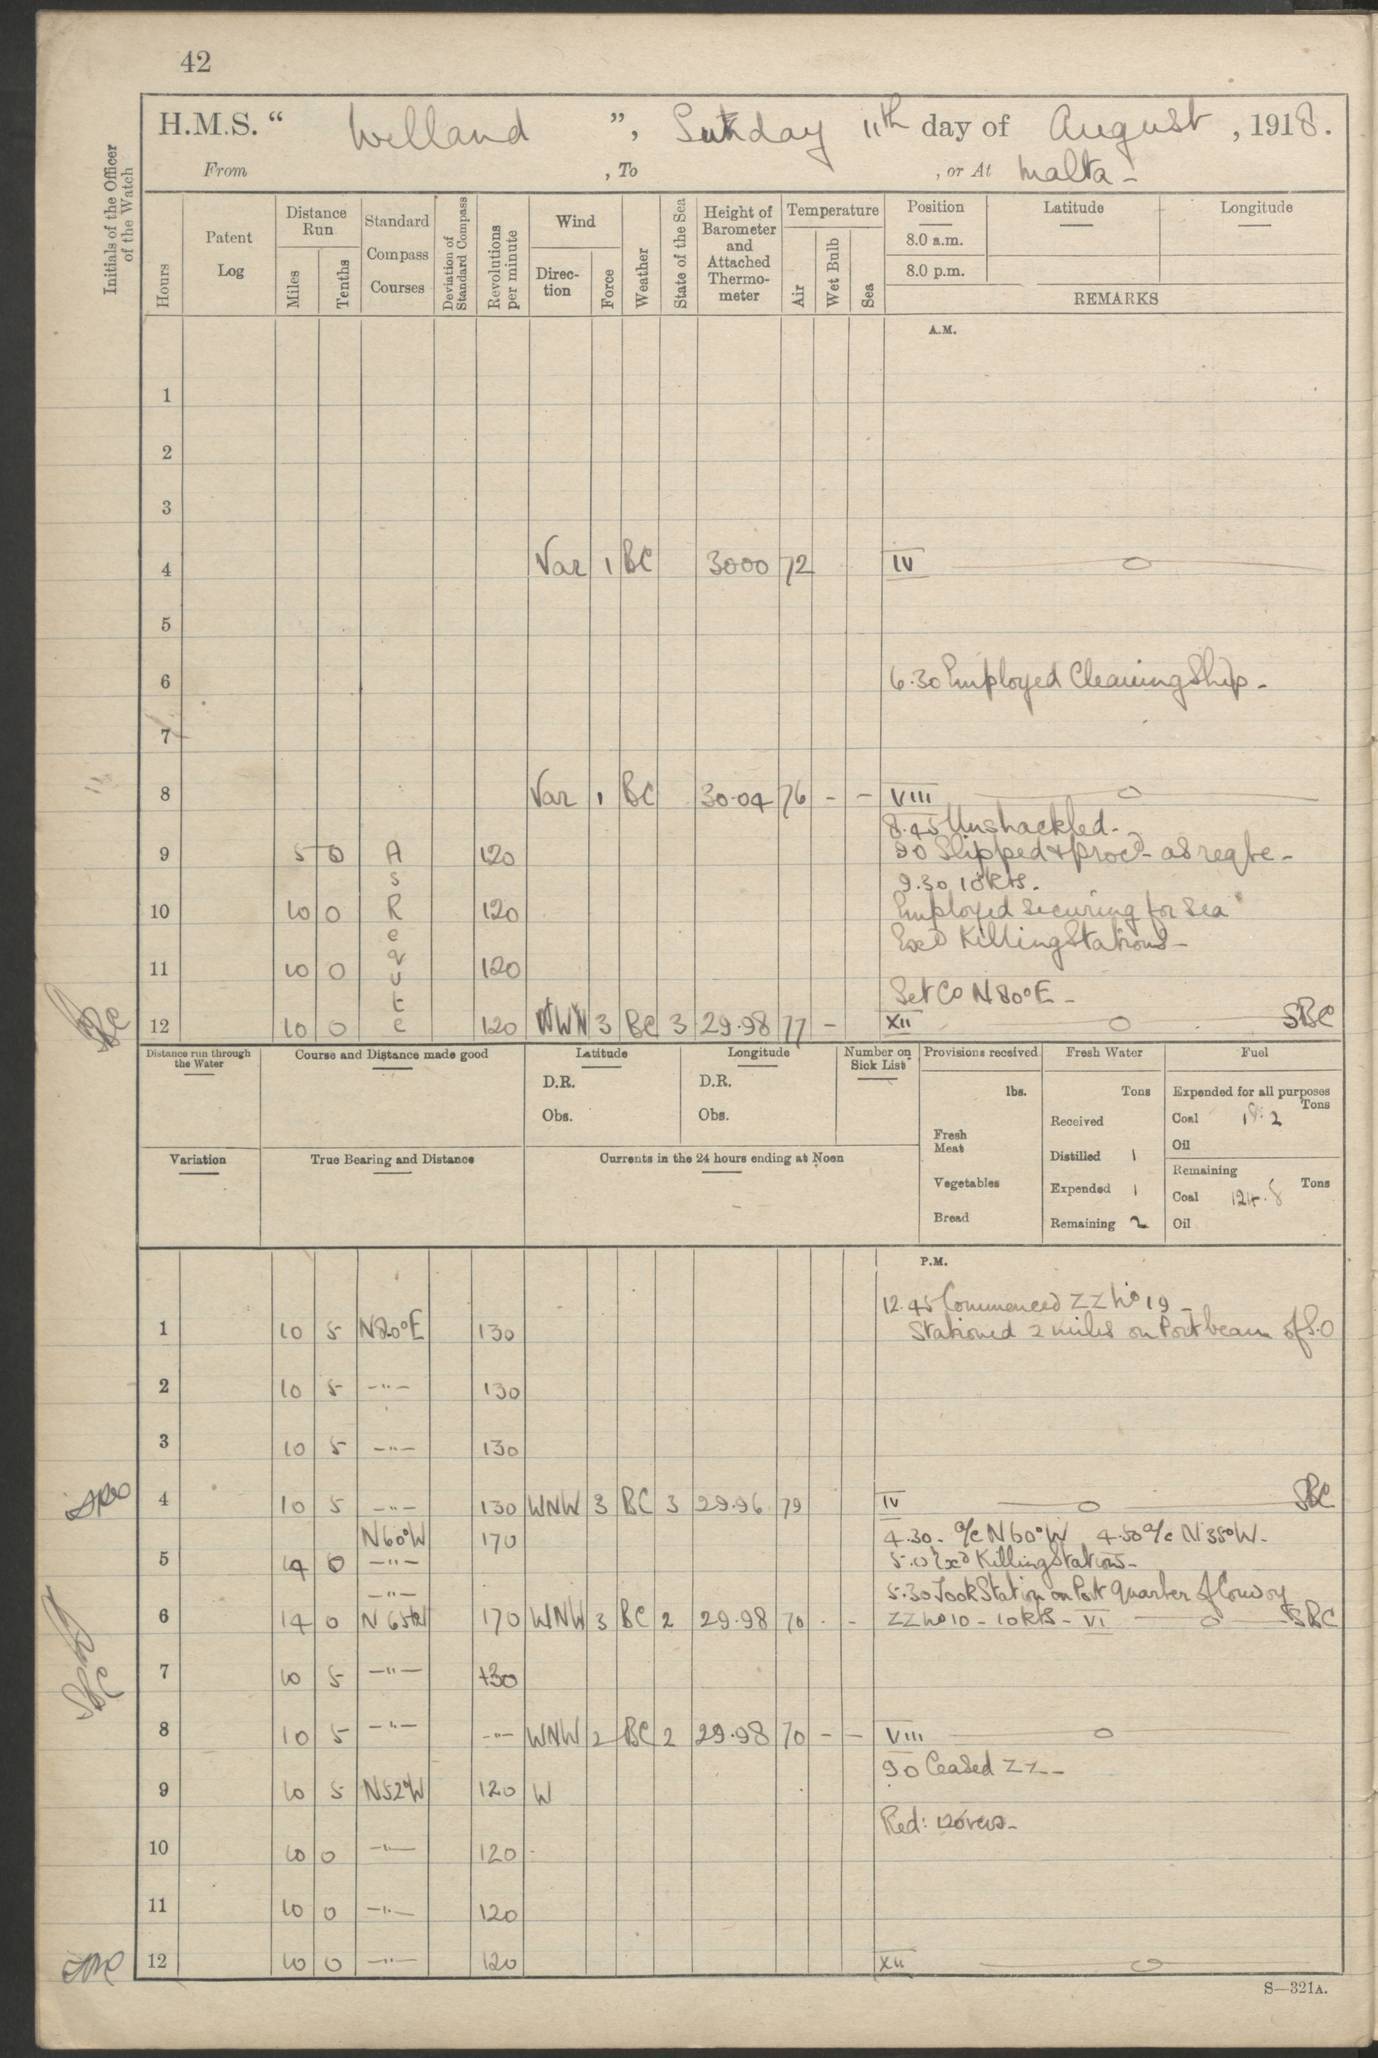 42
H.M.S. “ Welland ”, Sunday 11th day of August , 1918.
From , To , or At Malta -
Initials of the Officer of the Watch
Hours
Patent Log
Distance Run
Miles
Tenths
Standard Compass Courses
Deviation of Standard Compass
Revolutions per minute
Wind
Direc-tion
Force
Weather
State of the Sea
Height of Barometer and Attached Thermo-meter
Temperature
Air
Wet Bulb
Sea
Position Latitude Longitude
8.0 a.m.
8.0 p.m.
REMARKS
A.M.
1
2
3
4 Var 1 BC 3000 72 IV
5
6 6.30 Employed Cleaning Ship -
7
8 Var 1 BC 30.04 76 - - VIII
8.45 Unshackled -
9 5 0 A 120 9 0 Slipped & procd as reqte -
s 9.30 10 kts.
10 10 0 R 120 Employed securing for sea
e Exd Killing Stations -
q
11 10 0 u 120
t Set Co N 80° E -
12 10 0 e 120 WNW 3 BC 3 29.98 77 - XII SBC
Distance run through the Water
Course and Distance made good
Latitude
D.R.
Obs.
Longitude
D.R.
Obs.
Number on Sick List
Provisions received
lbs.
Fresh Meat
Vegetables
Bread
Fresh Water
Tons
Received
Distilled 1
Expended 1
Remaining 2
Fuel
Expended for all purposes
Tons
Coal 18.2
Oil
Remaining
Tons
Coal 124.8
Oil
Variation
True Bearing and Distance
Currents in the 24 hours ending at Noon
P.M.
12.45 Commenced ZZ No 19 -
1 10 5 N80°E 130 Stationed 2 miles on Port beam of S.O
2 10 5 -"- 130
3 10 5 -"- 130
4 10 5 -"- 130 WNW 3 BC 3 29.96 79 IV SBC
N60°W 170 4.30 - a/c N60°W 4.50 a/c N 35°W -
5 14 0 -"- 5.0 Exd Killing Stations -
-"- 5.30 Took Station on Port quarter of Convoy
6 14 0 N 65 W 170 WNW 3 BC 2 29.98 70 - - ZZ No 10 - 10 kts - VI SBC
7 10 5 -"- 130
8 10 5 -"- -"- WNW 2 BC 2 29.98 70 - - VIII
9 0 Ceased ZZ -
9 10 5 N52°W 120 W
Red: 120 revs -
10 10 0 -"- 120
11 10 0 -"- 120
12 10 0 -"- 120 XII
S—321A.